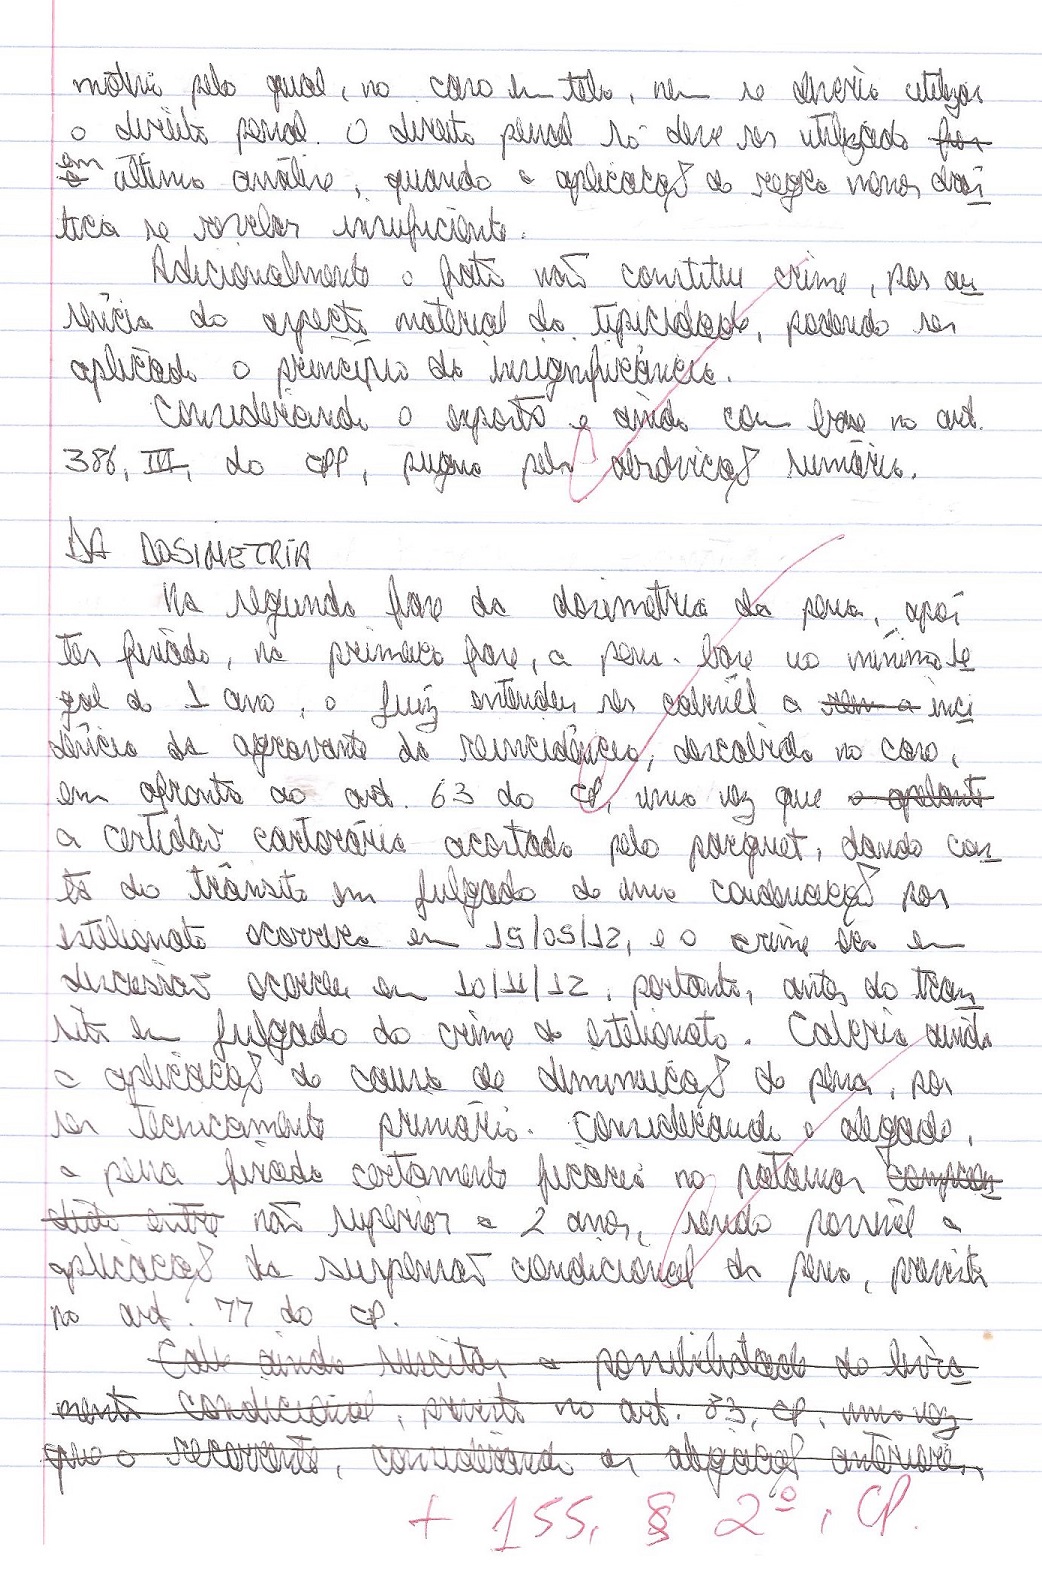 motivo pelo qual, no caso em tela, nem se deveria utilizar
o direito penal. O direito penal só deve ser utilizado
em última análise, quando a aplicação de regra menos drás
tica se revelar insuficiente.
Adicionalmente o fato não constitui crime, por au
sência do aspecto material da tipicidade, podendo ser
aplicado o princípio da insignificância.
Considerando o exposto e ainda com base no art.
386, III, do CPP, pugna pela absolvição sumária.
DA DOSIMETRIA
Na segunda fase da dosimetria da pena, após
ter fixado, na primeira fase, a pena-base no mínimo le
gal de 1 ano, o juiz entendeu ser cabível a inci
dência da agravante da reincidência, descabida no caso,
em afronta ao art. 63 do CP, uma vez que o apelante
a certidão cartorária acostada pelo parquet, dando con
ta do trânsito em julgado de uma condenação por
estelionato ocorrera em 15/05/12, e o crime em
discussão ocorreu em 10/11/12, portanto, antes do tran
sito em julgado do crime de estelionato. Caberia ainda
a aplicação de causa de diminuição de pena, por
ser tecnicamente primário. Considerando o alegado,
a pena fixada certamente ficaria no patamar compreen
dido entre não superior a 2 anos, sendo possível a
aplicação da suspensão condicional da pena, prevista
no art. 77 do CP.
Cabe ainda suscitar a possibilidade do livra
mento condicional, previsto no art. 83, CP, uma vez
que o recorrente, considerando as alegações anteriores,
+ 155, § 2º, CP.